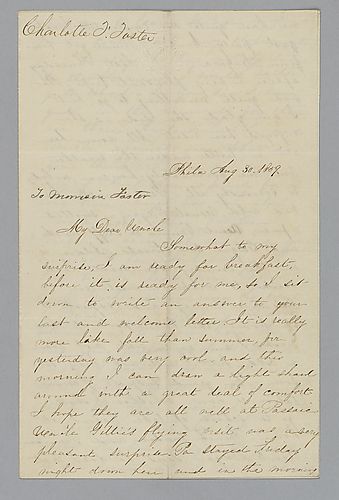 Charlotte F. Foster
Phila Aug 30. 1869.
To Morrison Foster
My Dear Uncle
Somewhat to my
surprise, I am ready for breakfast,
before it is ready for me, so I sit
down to write an answer to your
last and welcome letter. It is really
more like fall than summer, for
yesterday was very cool, and this
morning I can draw a light shawl
around with a great deal of comfort.
I hope they are all well at Passaic
Uncle flying visit was a very
pleasant surprise. Pa stayed Friday
night down here and in the morning